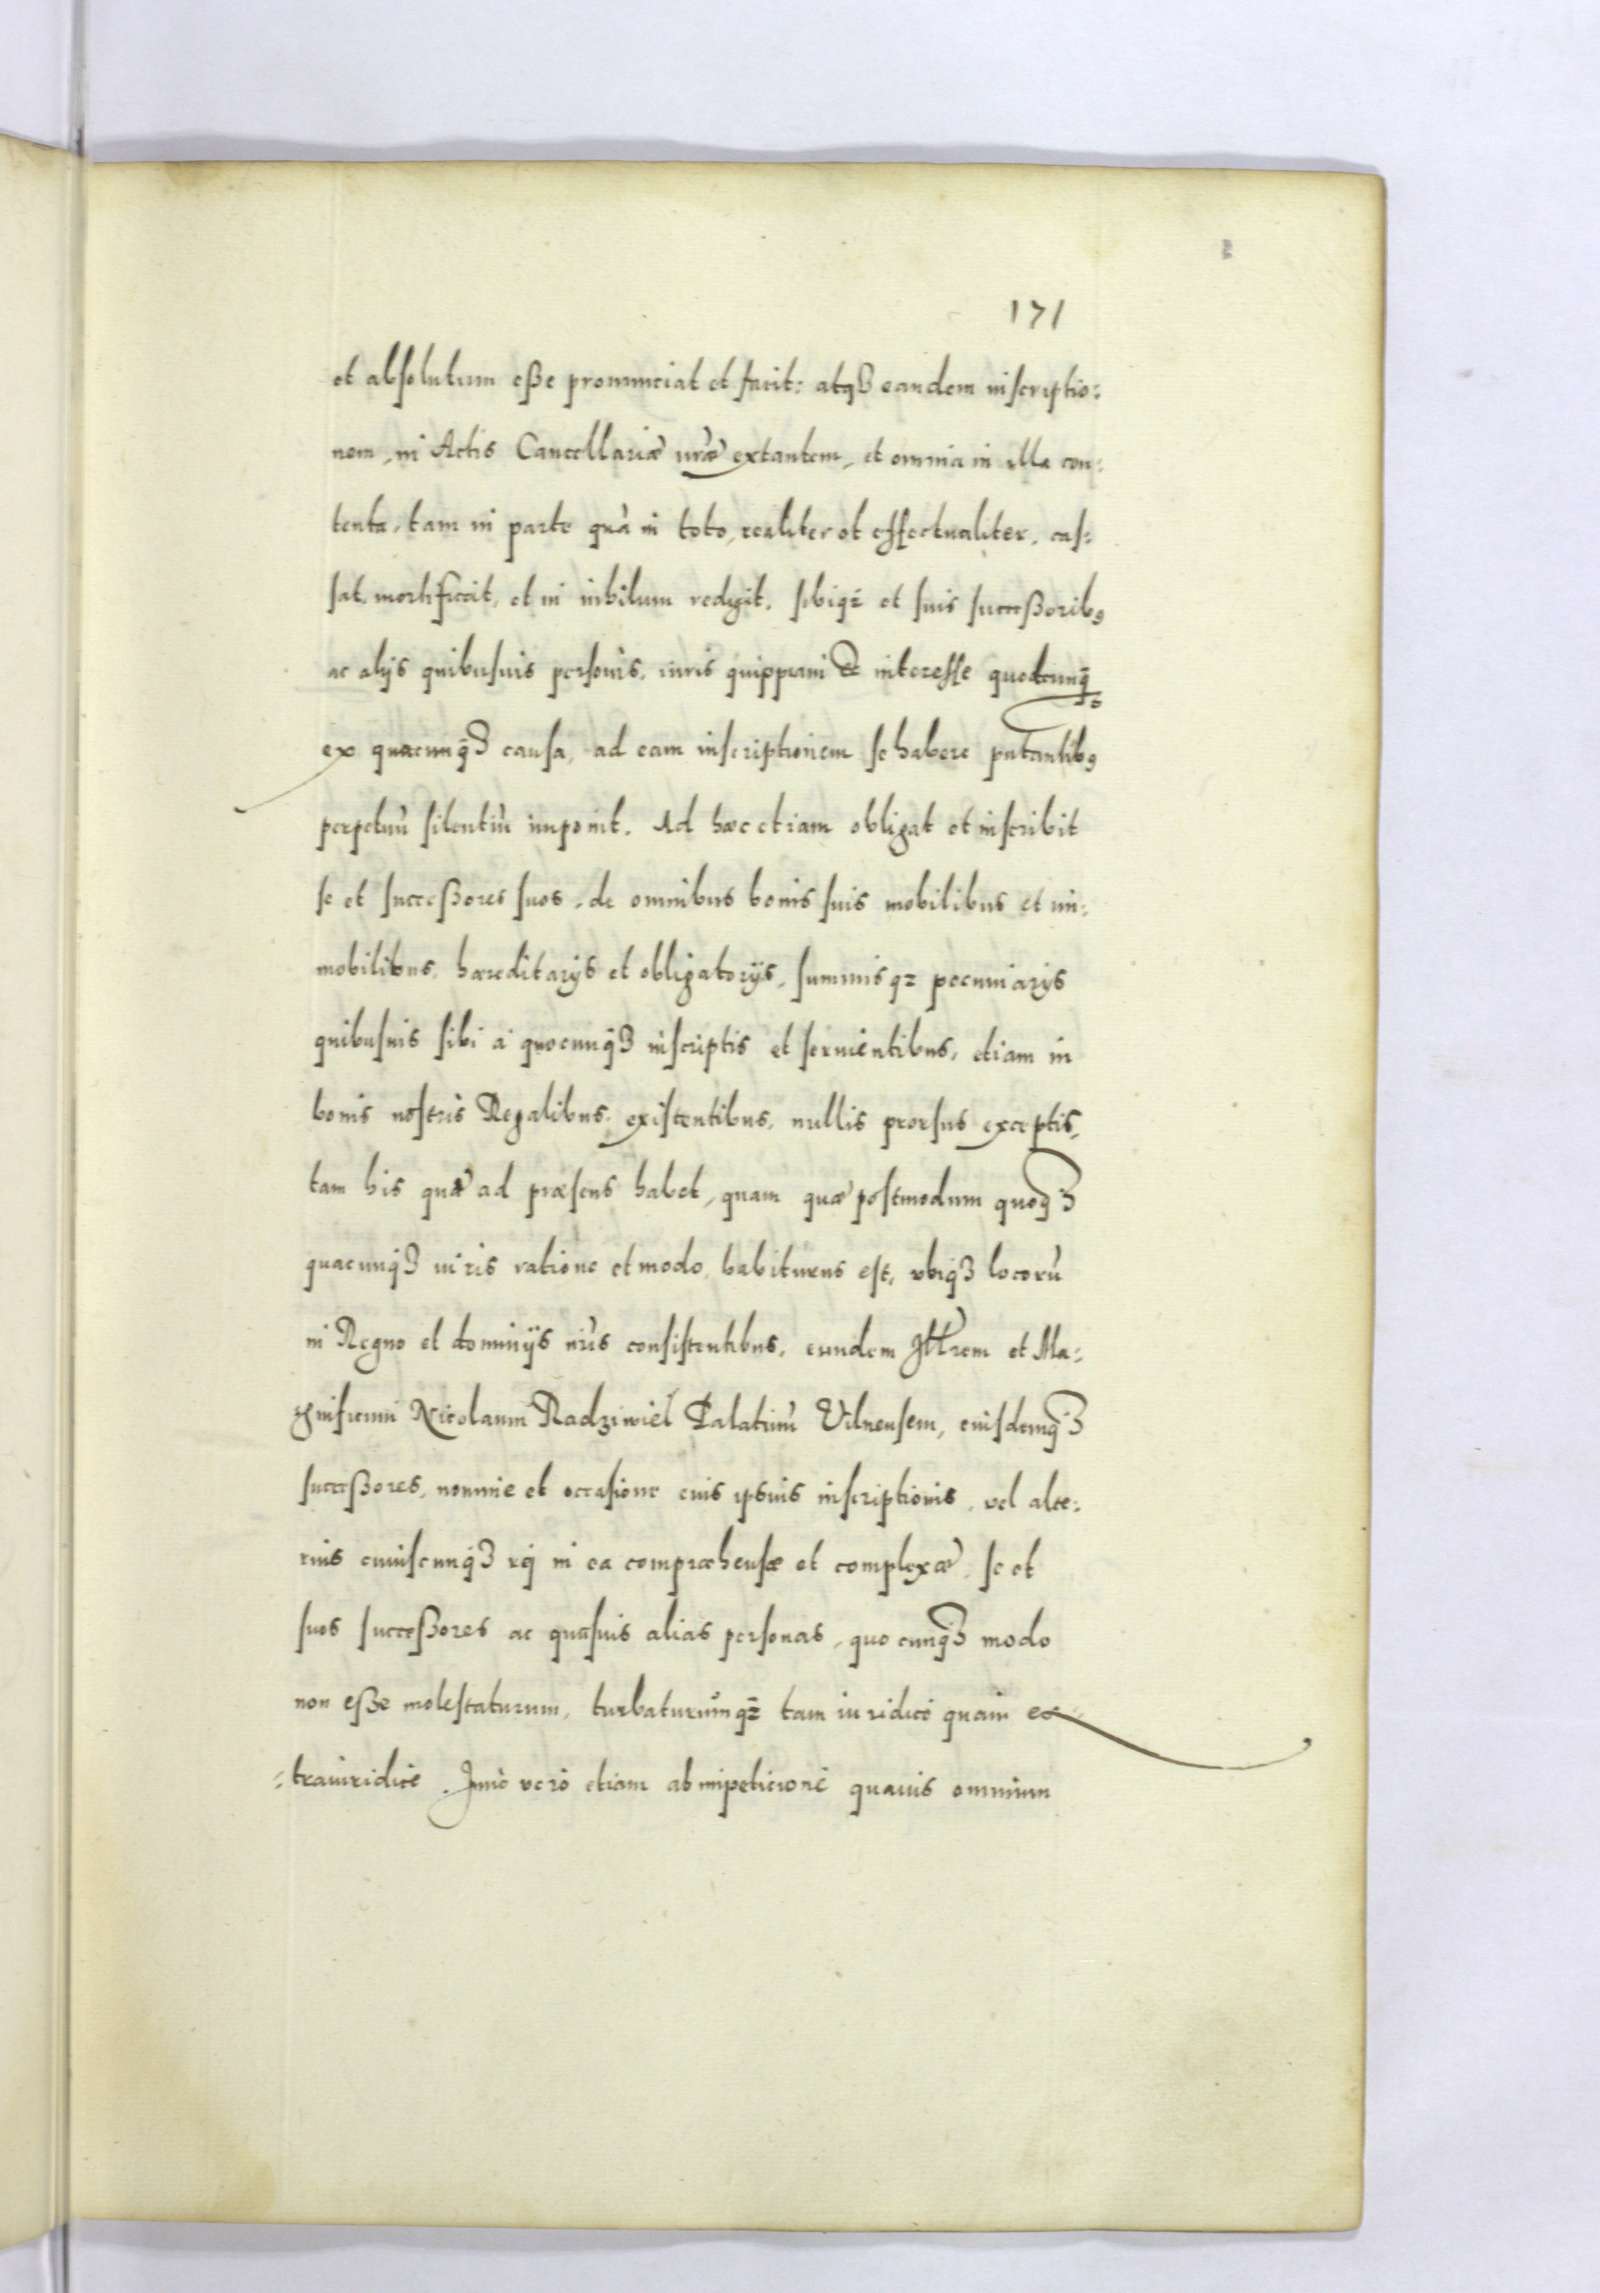 171
et absolutum eße pronunciat et facit: atqȝ eandem inscriptio:
nem, in Actis Cancellariæ nr̃æ extantem, et omnia in illa con:
tenta, tam in parte quã in toto, realiter et effectualiter, cas:
sat, mortificat, et in nihilum redigit, sibiqȝ et suis succeßorib9
ac alijs quibusuis personis, iuris quippiam & interesse quodcunq̃
ex quacunqȝ causa, ad eam inscriptionem se habere putantib9
perpetuũ silentiũ imponit. Ad hæc etiam obligat et inscribit
se et succeßores suos, de omnibus bonis suis mobilibus et im:
mobilibus, hæreditarijs et obligatorijs, summisqȝ pecuniarijs
quibusuis sibi à quocunqȝ inscriptis et seruientibus, etiam in
bonis nostris Regalibus existentibus, nullis prorsus exceptis,
tam his quæ ad præsens habet, quam quæ postmodum quoqȝ
quacunqȝ iuris ratione et modo, habiturus est, vbiqȝ locorũ
in Regno et dominijs nr̃is consistentibus, eundem Jllrem et Ma:
gnificum Nicolaum Radziwiel Palatinũ Vilnensem, eiusdemqȝ
succeßores, nomine et occasione eius ipsius inscriptionis, vel alte:
rius cuiuscunqȝ rei in ea compræhensæ et complexæ, se et
suos succeßores ac quasuis alias personas, quocunqȝ modo
non eße molestaturum, turbaturumqȝ tam iuridicè quam ex
:traiuridicè. Jmò verò etiam ab impeticione quauis omnium